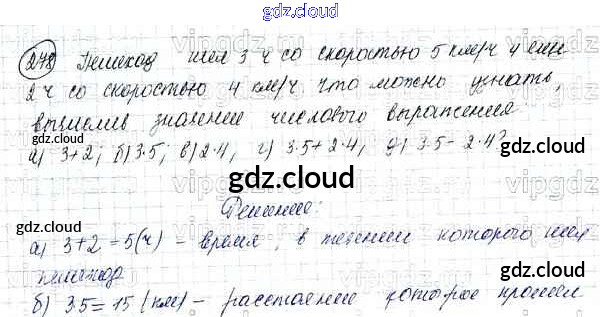 gdz.cloud
278 Пешеход шел 3 ч со скоростью 5 км/ч и еще
2 ч со скоростью 4 км/ч что можно узнать,
вычислив значение числового выражения
а) 3+2; б) 3·5; в) 2·4, г) 3·5+2·4, д) 3·5-2·4?
gdz.cloud
Решение:
gdz.cloud
а) 3+2=5(ч) - время, в течении которого шел
пешеход
б) 3·5=15 (км) - расстояние которое прошел
gdz.cloud